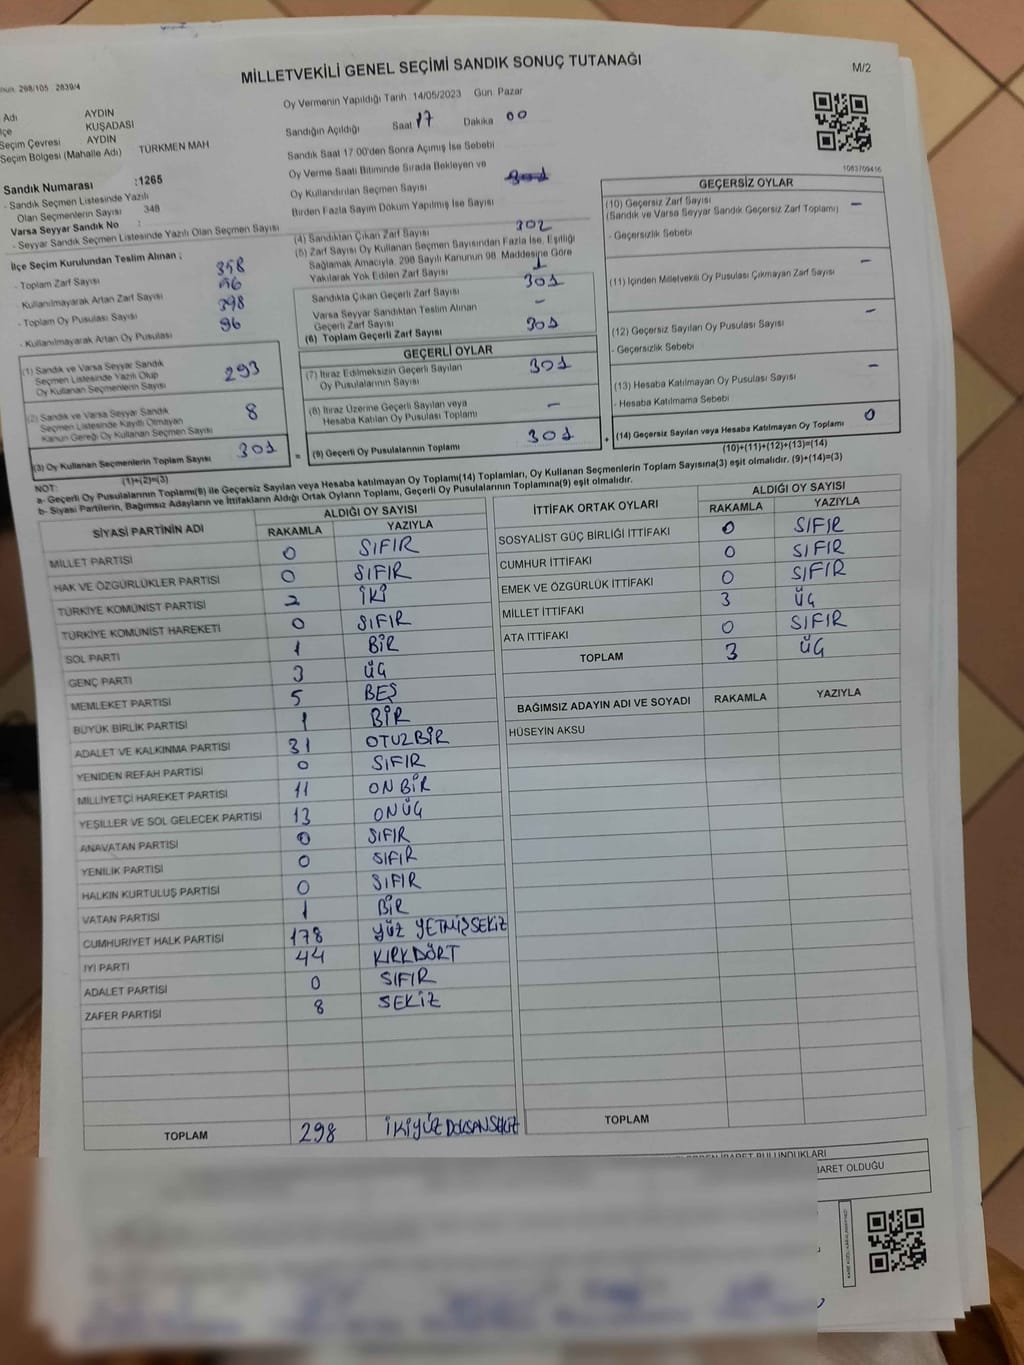 MİLLETVEKİLİ GENEL SEÇİMİ SANDIK SONUÇ TUTANAĞI
M/2
298/105 2839/4
Adı AYDIN
KUŞADASI
Seçim Çevresi AYDIN
Seçim Bölgesi (Mahalle Adı) TÜRKMEN MAH
Sandık Numarası :1265
- Sandık Seçmen Listesinde Yazılı
Olan Seçmenlerin Sayısı 348
Varsa Seyyar Sandık No :
- Seyyar Sandık Seçmen Listesinde Yazılı Olan Seçmen Sayısı
İlçe Seçim Kurulundan Teslim Alınan ;
- Toplam Zarf Sayısı 398
- Kullanılmayarak Artan Zarf Sayısı 96
- Toplam Oy Pusulası Sayısı 398
- Kullanılmayarak Artan Oy Pusulası 96
(1) Sandık ve Varsa Seyyar Sandık
Seçmen Listesinde Yazılı Olup
Oy Kullanan Seçmenlerin Sayısı 293
(2) Sandık ve Varsa Seyyar Sandık
Seçmen Listesinde Kayıtlı Olmayan
Kanun Gereği Oy Kullanan Seçmen Sayısı 8
(3) Oy Kullanan Seçmenlerin Toplam Sayısı 301
(1)+(2)=(3)
Oy Vermenin Yapıldığı Tarih :14/05/2023 Gün: Pazar
Sandığın Açıldığı Saat 17 Dakika 00
Sandık Saat 17:00'den Sonra Açımış İse Sebebi
Oy Verme Saati Bitiminde Sırada Bekleyen ve
Oy Kullandırılan Seçmen Sayısı 301
Birden Fazla Sayım Döküm Yapılmış İse Sayısı
(4) Sandıktan Çıkan Zarf Sayısı 302
(5) Zarf Sayısı Oy Kullanan Seçmen Sayısından Fazla İse, Eşitliği
Sağlamak Amacıyla, 298 Sayılı Kanunun 98. Maddesine Göre
Yakılarak Yok Edilen Zarf Sayısı 1
Sandıkta Çıkan Geçerli Zarf Sayısı 301
Varsa Seyyar Sandıktan Teslim Alınan
Geçerli Zarf Sayısı –
(6) Toplam Geçerli Zarf Sayısı 301
GEÇERLİ OYLAR
(7) İtiraz Edilmeksizin Geçerli Sayılan
Oy Pusulalarının Sayısı 301
(8) İtiraz Üzerine Geçerli Sayılan veya
Hesaba Katılan Oy Pusulası Toplamı –
= (9) Geçerli Oy Pusulalarının Toplamı 301 +
1083709416
GEÇERSİZ OYLAR
(10) Geçersiz Zarf Sayısı –
(Sandık ve Varsa Seyyar Sandık Geçersiz Zarf Toplamı)
- Geçersizlik Sebebi
(11) İçinden Milletvekili Oy Pusulası Çıkmayan Zarf Sayısı –
(12) Geçersiz Sayılan Oy Pusulası Sayısı –
- Geçersizlik Sebebi
(13) Hesaba Katılmayan Oy Pusulası Sayısı –
- Hesaba Katılmama Sebebi
(14) Geçersiz Sayılan veya Hesaba Katılmayan Oy Toplamı 0
(10)+(11)+(12)+(13)=(14)
NOT:
a- Geçerli Oy Pusulalarının Toplamı(9) ile Geçersiz Sayılan veya Hesaba katılmayan Oy Toplamı(14) Toplamları, Oy Kullanan Seçmenlerin Toplam Sayısına(3) eşit olmalıdır. (9)+(14)=(3)
b- Siyasi Partilerin, Bağımsız Adayların ve İttifakların Aldığı Ortak Oyların Toplamı, Geçerli Oy Pusulalarının Toplamına(9) eşit olmalıdır.
SİYASİ PARTİNİN ADI ALDIĞI OY SAYISI
RAKAMLA YAZIYLA
MİLLET PARTİSİ 0 SIFIR
HAK VE ÖZGÜRLÜKLER PARTİSİ 0 SIFIR
TÜRKİYE KOMÜNİST PARTİSİ 2 İKİ
TÜRKİYE KOMÜNİST HAREKETİ 0 SIFIR
SOL PARTİ 1 BİR
GENÇ PARTİ 3 ÜÇ
MEMLEKET PARTİSİ 5 BEŞ
BÜYÜK BİRLİK PARTİSİ 1 BİR
ADALET VE KALKINMA PARTİSİ 31 OTUZBİR
YENİDEN REFAH PARTİSİ 0 SIFIR
MİLLİYETÇİ HAREKET PARTİSİ 11 ONBİR
YEŞİLLER VE SOL GELECEK PARTİSİ 13 ONÜÇ
ANAVATAN PARTİSİ 0 SIFIR
YENİLİK PARTİSİ 0 SIFIR
HALKIN KURTULUŞ PARTİSİ 0 SIFIR
VATAN PARTİSİ 1 BİR
CUMHURİYET HALK PARTİSİ 178 YÜZ YETMİŞSEKİZ
İYİ PARTİ 44 KIRKDÖRT
ADALET PARTİSİ 0 SIFIR
ZAFER PARTİSİ 8 SEKİZ
TOPLAM 298 İKİYÜZDOKSANSEKİZ
İTTİFAK ORTAK OYLARI ALDIĞI OY SAYISI
RAKAMLA YAZIYLA
SOSYALİST GÜÇ BİRLİĞİ İTTİFAKI 0 SIFIR
CUMHUR İTTİFAKI 0 SIFIR
EMEK VE ÖZGÜRLÜK İTTİFAKI 0 SIFIR
MİLLET İTTİFAKI 3 ÜÇ
ATA İTTİFAKI 0 SIFIR
TOPLAM 3 ÜÇ
BAĞIMSIZ ADAYIN ADI VE SOYADI RAKAMLA YAZIYLA
HÜSEYİN AKSU
TOPLAM
BULUNDUKLARI
İBARET OLDUĞU